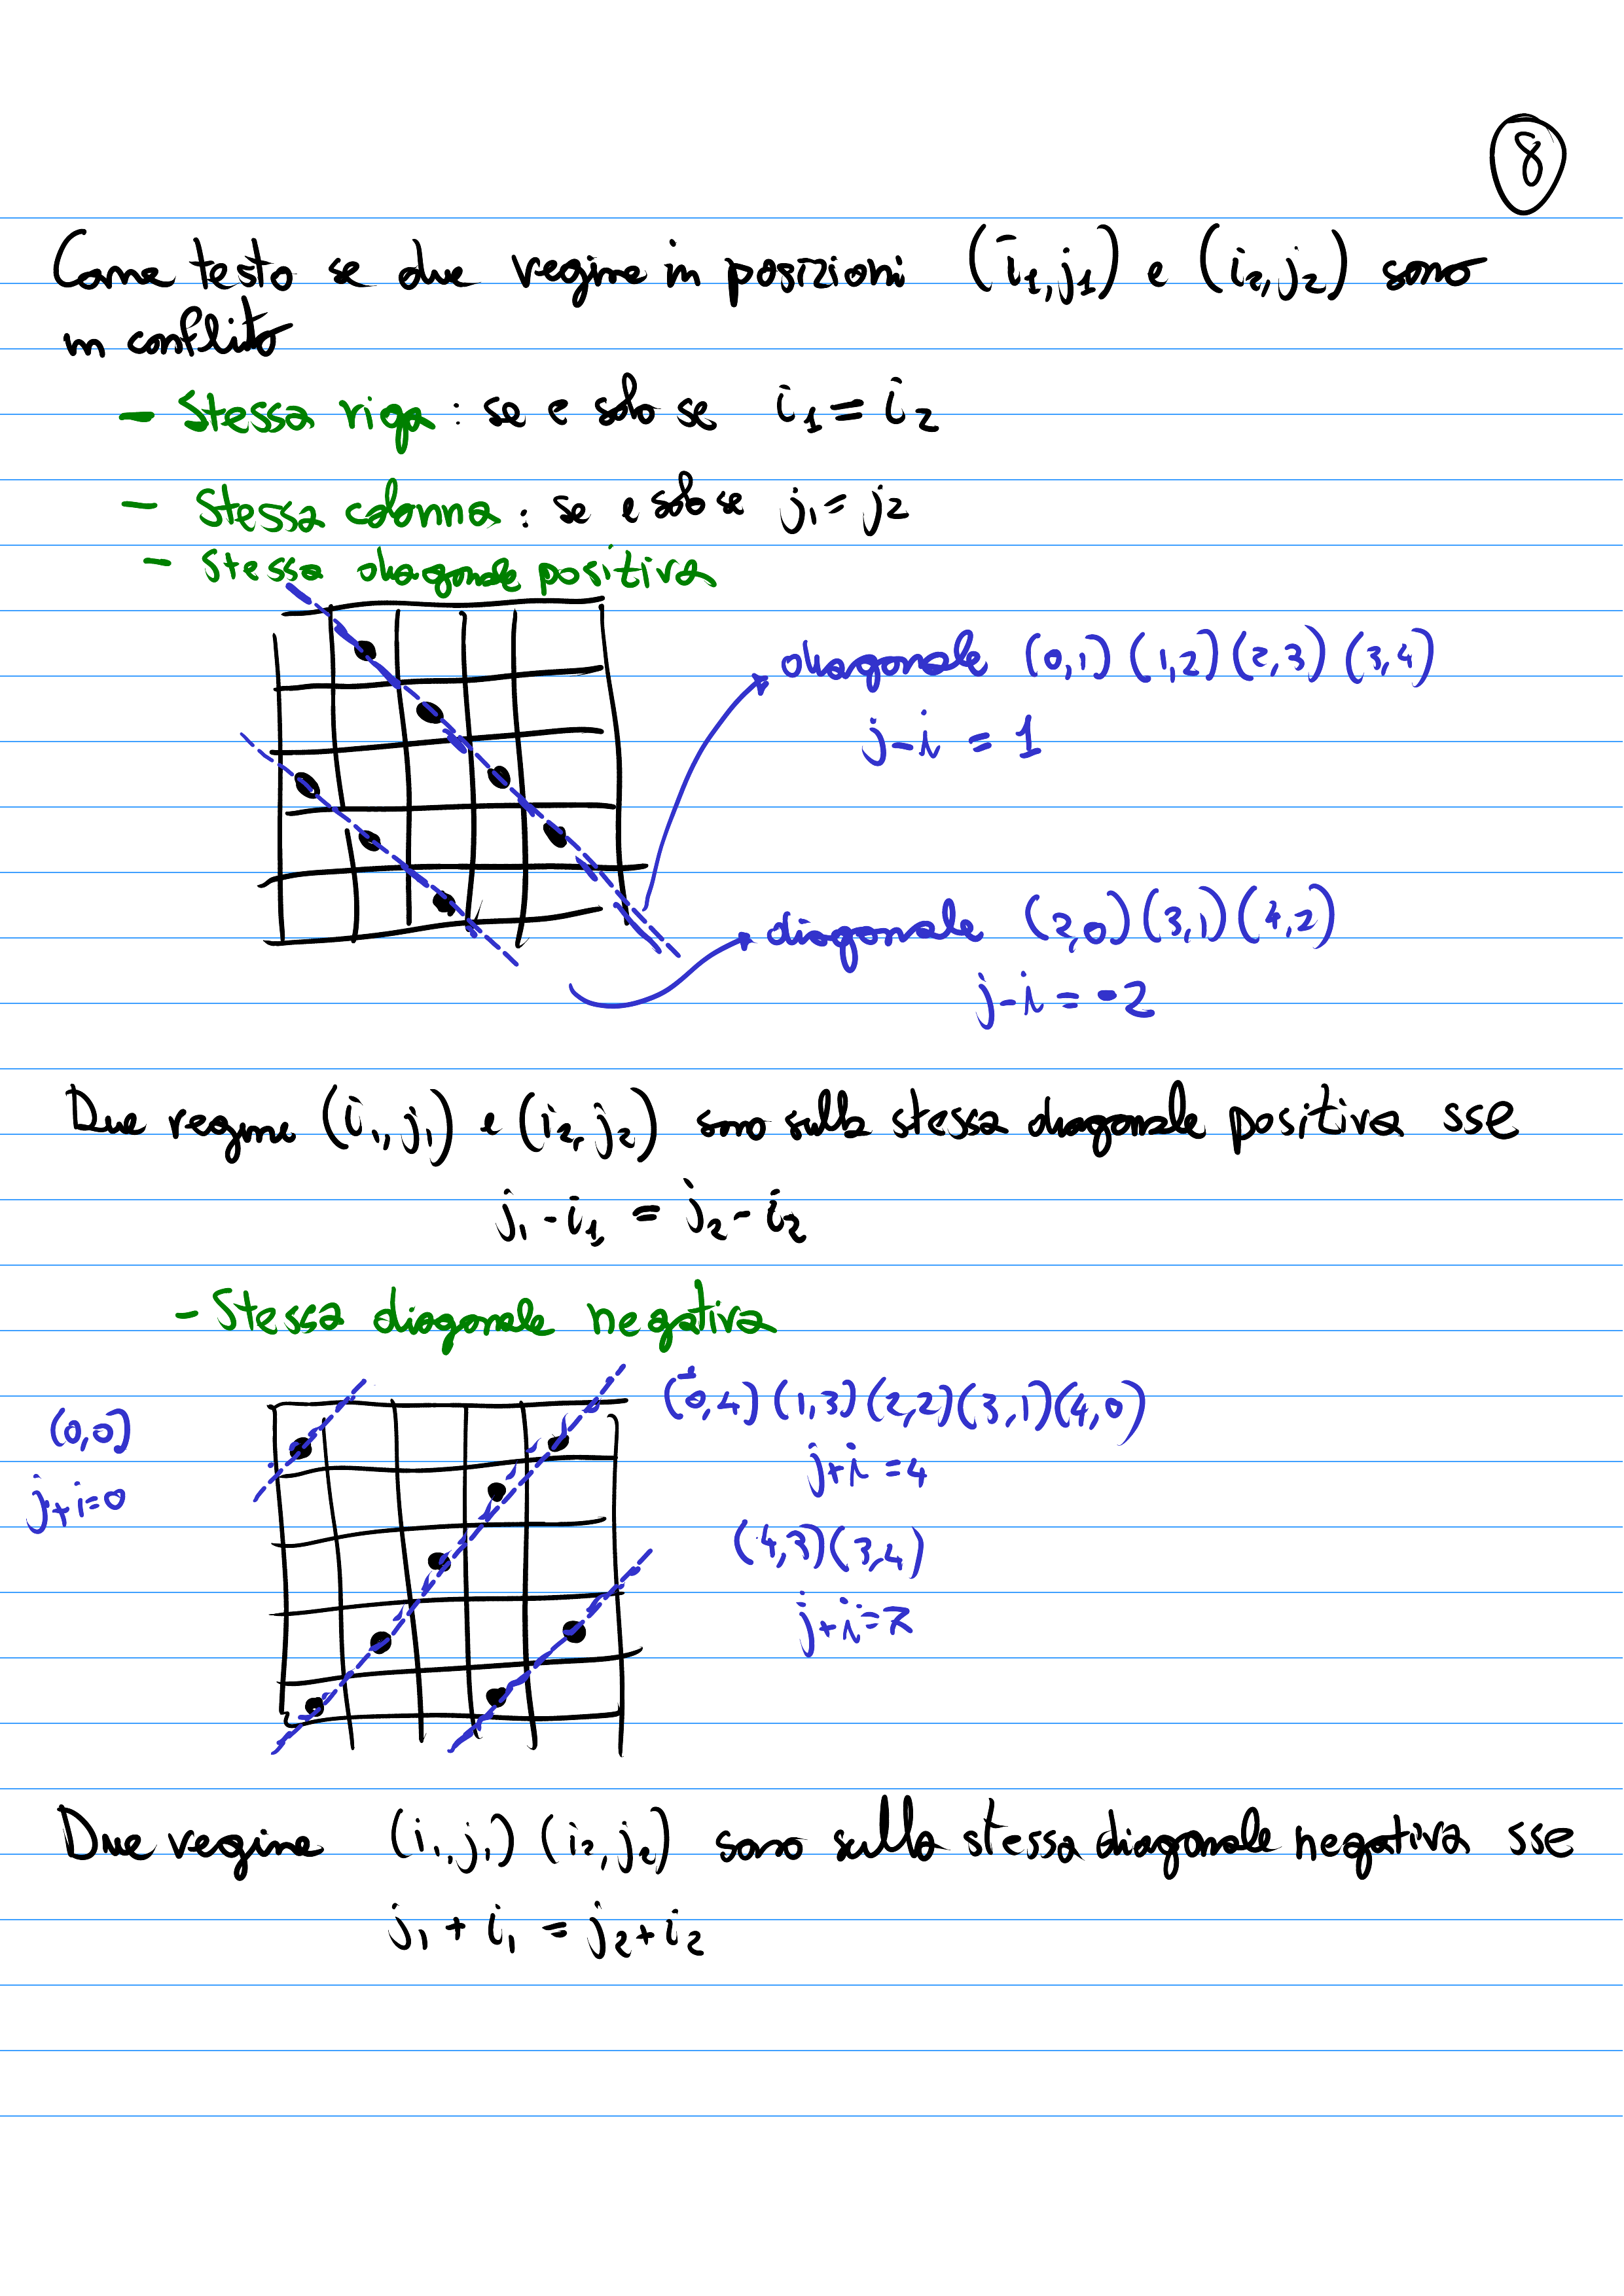 8
Come testo se due regine in posizioni (i1,j1) e (i2,j2) sono
in conflito
- Stessa riga : se e solo se i1 = i2
- Stessa colonna : se e solo se j1 = j2
- Stessa diagonale positiva
diagonale (0,1) (1,2) (2,3) (3,4)
j-i = 1
diagonale (2,0) (3,1) (4,2)
j-i = -2
Due regine (i1,j1) e (i2,j2) sono sulla stessa diagonale positiva sse
j1 - i1 = j2 - i2
- Stessa diagonale negativa
(0,4) (1,3) (2,2) (3,1) (4,0)
(0,0)
j+i = 4
j+i=0
(4,3) (3,4)
j+i=7
Due regine (i1,j1) (i2,j2) sono sulla stessa diagonale negativa sse
j1 + i1 = j2 + i2